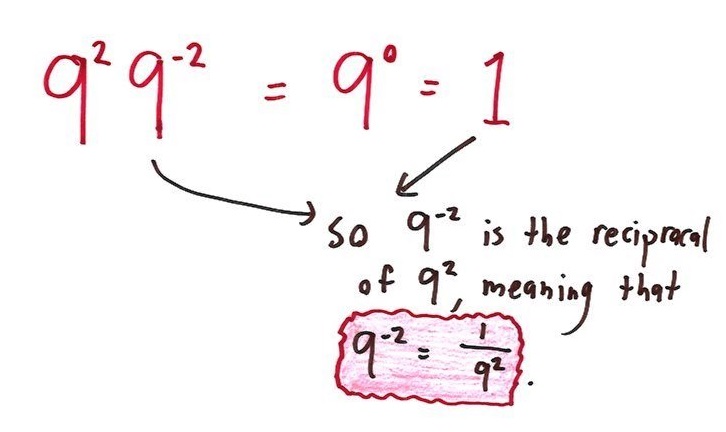 9² 9⁻² = 9⁰ = 1
so 9⁻² is the reciprocal
of 9², meaning that
9⁻² = 1/9².